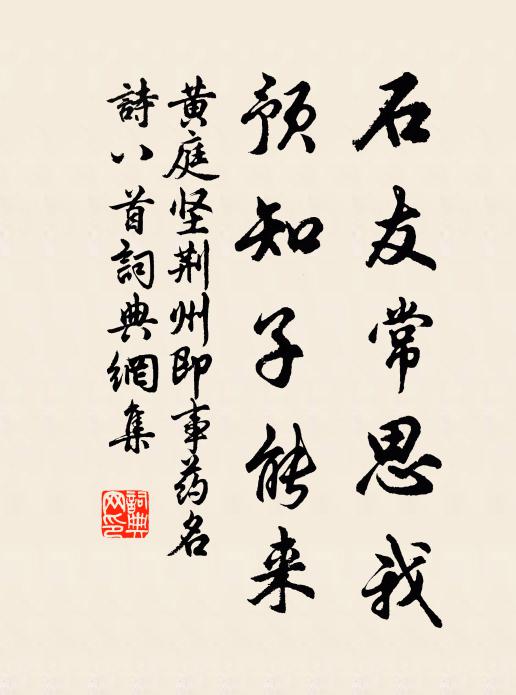 石友常思我
预知子能来
黄庭坚荆州即事药名
詩八首詞典網集
詞典
网印